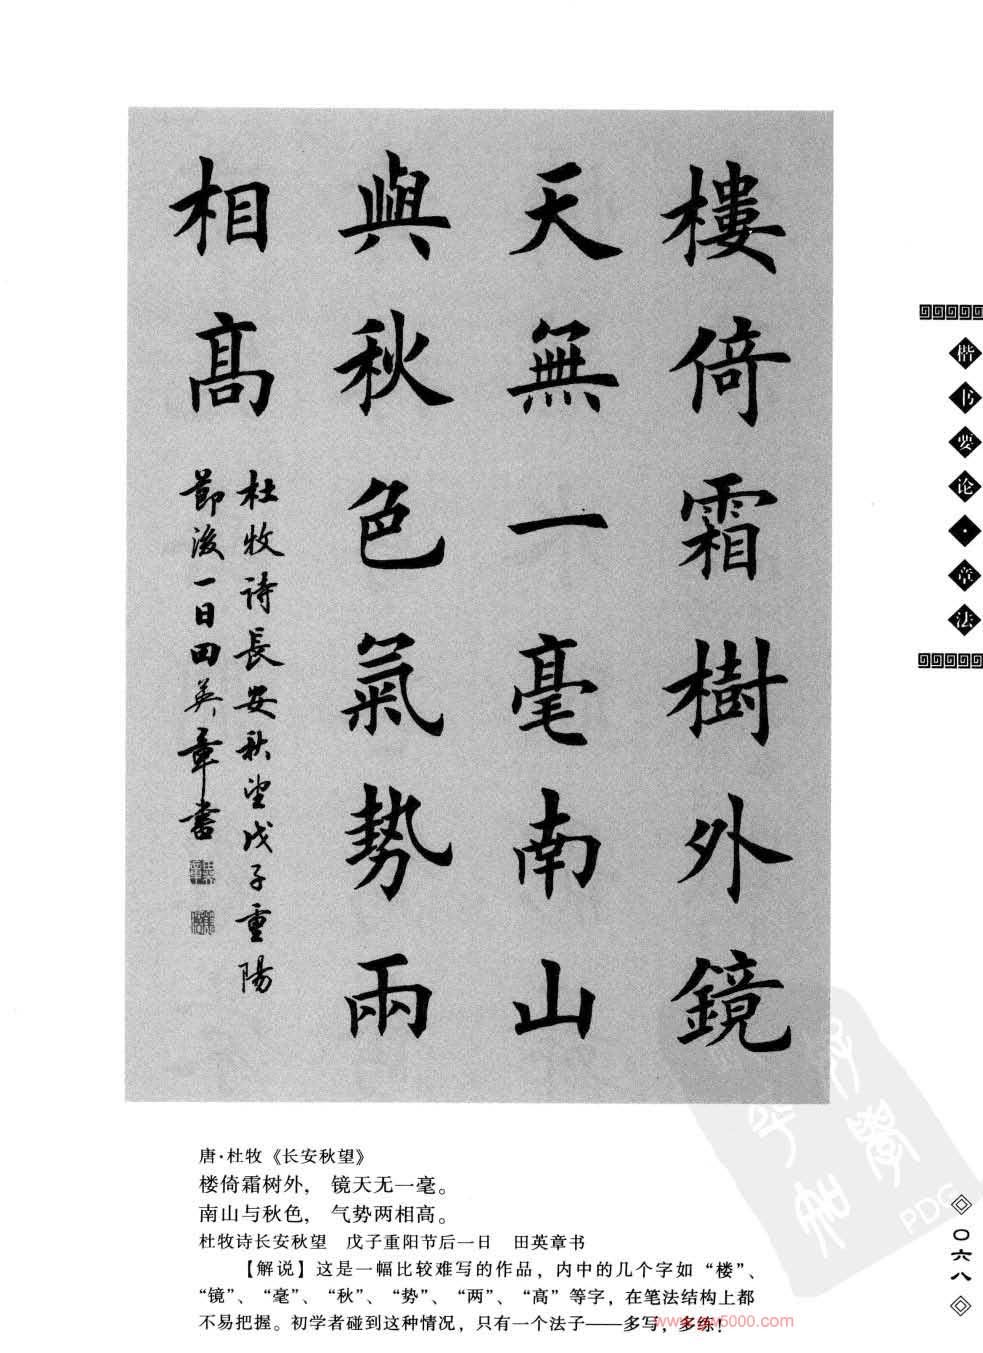 樓倚霜樹外鏡
天無一毫南山
與秋色氣勢兩
相高
杜牧诗長安秋望戊子重陽
節後一日田英章書
楷书要论·章法
唐·杜牧《长安秋望》
楼倚霜树外，镜天无一毫。
南山与秋色，气势两相高。
杜牧诗长安秋望 戊子重阳节后一日 田英章书
【解说】这是一幅比较难写的作品，内中的几个字如“楼”、
“镜”、“毫”、“秋”、“势”、“两”、“高”等字，在笔法结构上都
不易把握。初学者碰到这种情况，只有一个法子——多写，多练！
〇六八
www.gw5000.com
PDG